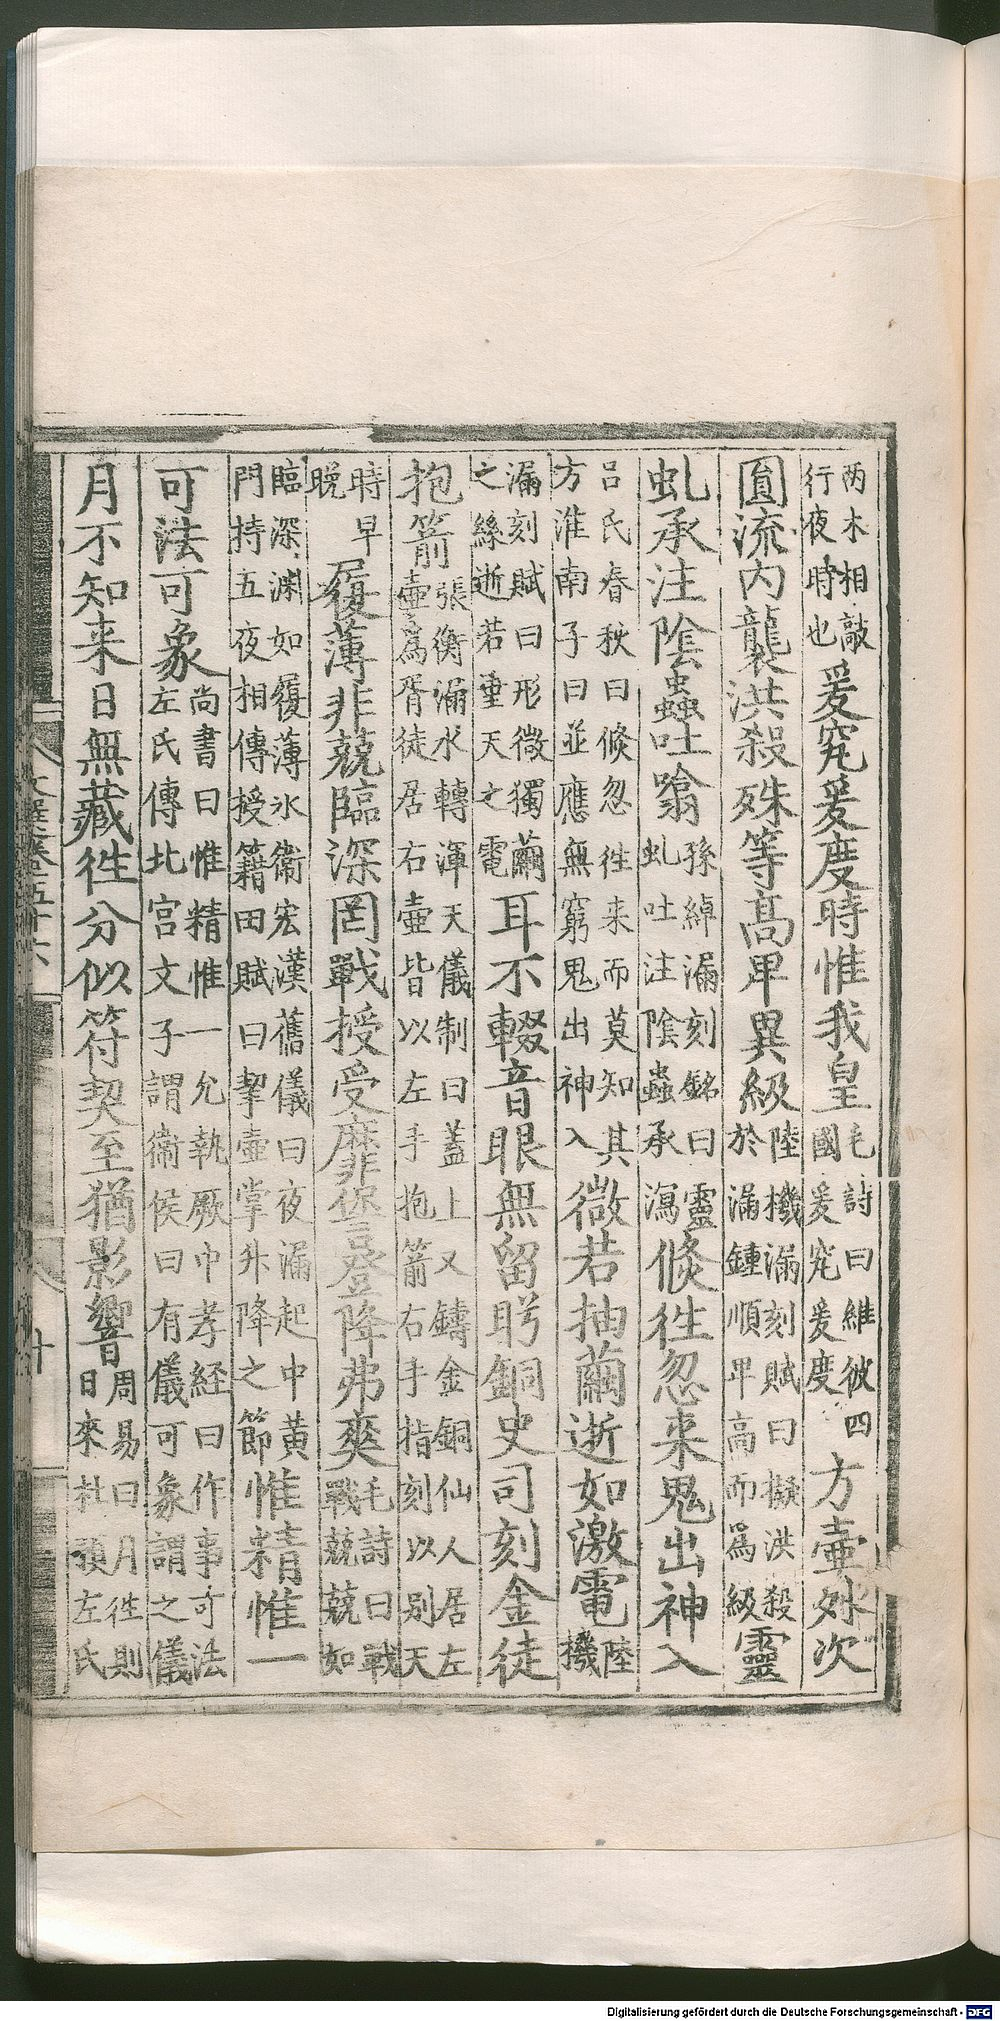 两木相敲行夜時也爰究爰度時惟我皇毛詩曰維彼四國爰究爰度方壷外次
圎流内襲洪殺殊等髙卑異級陸機漏刻賦曰擬洪殺於漏鍾順卑高而爲級靈
虬承注隂蟲吐噏孫綽漏刻銘曰靈虬吐注隂蟲承瀉倐徃忽来鬼出神入
吕氏春秋曰倐忽徃来而莫知其方淮南子曰並應無窮鬼出神入微若抽繭逝如激電陸機
漏刻賦曰形微獨繭之絲逝若垂天之電耳不輟音眼無留眄銅史司刻金徒
抱箭張衡漏水轉渾天儀制曰蓋上又鑄金銅仙人居左壷爲胥徒居右壷皆以左手抱箭右手指刻以别天
時早晚履薄非兢臨深罔戰授受靡愆登降弗爽毛詩曰戰戰兢兢如
臨深渊如履薄氷衞宏漢舊儀曰夜漏起中黄門持五夜相傳授籍田賦曰挈壷掌升降之節惟精惟一
可法可象尚書曰惟精惟一允執厥中孝経曰作事可法左氏傳北宫文子謂衞侯曰有儀可象謂之儀
月不知来日無藏徃分似符契至猶影響周易曰月徃則日來杜預左氏
文選卷五十六
十
Digitalisierung gefördert durch die Deutsche Forschungsgemeinschaft - DFG